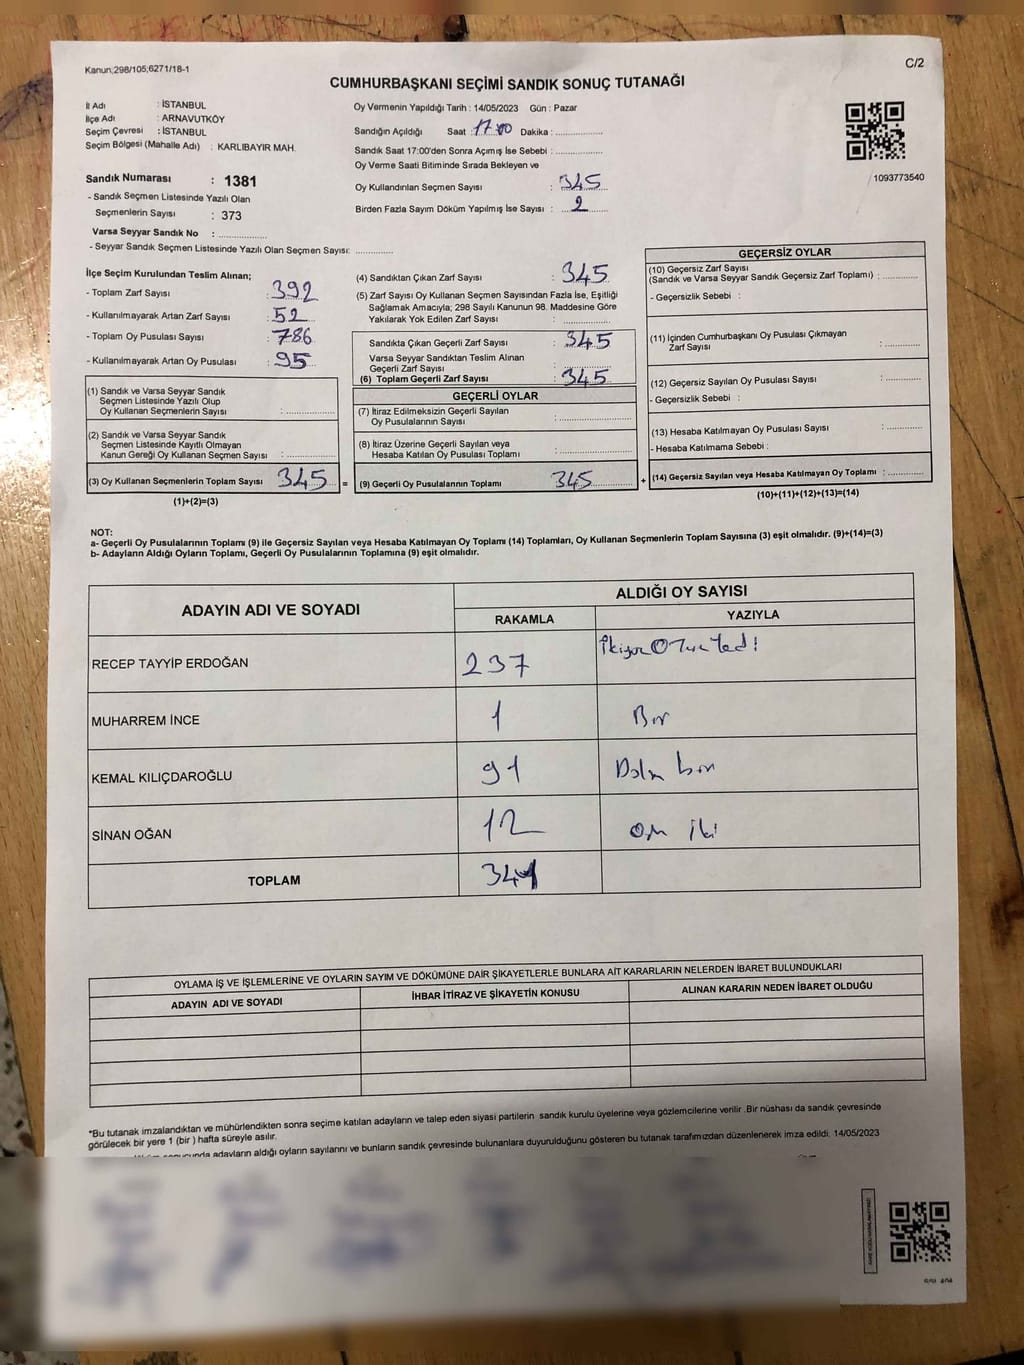 Kanun;298/105;6271/18-1
C/2
CUMHURBAŞKANI SEÇİMİ SANDIK SONUÇ TUTANAĞI
İl Adı : İSTANBUL
İlçe Adı : ARNAVUTKÖY
Seçim Çevresi : İSTANBUL
Seçim Bölgesi (Mahalle Adı) : KARLIBAYIR MAH.
Oy Vermenin Yapıldığı Tarih : 14/05/2023 Gün : Pazar
Sandığın Açıldığı Saat : 17:00 Dakika : ..............
Sandık Saat 17:00'den Sonra Açımış İse Sebebi : ..............
Oy Verme Saati Bitiminde Sırada Bekleyen ve
Oy Kullandırılan Seçmen Sayısı : 345
Birden Fazla Sayım Döküm Yapılmış İse Sayısı : 2
1093773540
Sandık Numarası : 1381
- Sandık Seçmen Listesinde Yazılı Olan
Seçmenlerin Sayısı : 373
Varsa Seyyar Sandık No : ..............
- Seyyar Sandık Seçmen Listesinde Yazılı Olan Seçmen Sayısı: ..............
İlçe Seçim Kurulundan Teslim Alınan;
- Toplam Zarf Sayısı : 392
- Kullanılmayarak Artan Zarf Sayısı : 52
- Toplam Oy Pusulası Sayısı : 786
- Kullanılmayarak Artan Oy Pusulası : 95
(1) Sandık ve Varsa Seyyar Sandık
Seçmen Listesinde Yazılı Olup
Oy Kullanan Seçmenlerin Sayısı : ..............
(2) Sandık ve Varsa Seyyar Sandık
Seçmen Listesinde Kayıtlı Olmayan
Kanun Gereği Oy Kullanan Seçmen Sayısı : ..............
(3) Oy Kullanan Seçmenlerin Toplam Sayısı 345 =
(1)+(2)=(3)
(4) Sandıktan Çıkan Zarf Sayısı : 345
(5) Zarf Sayısı Oy Kullanan Seçmen Sayısından Fazla İse, Eşitliği
Sağlamak Amacıyla; 298 Sayılı Kanunun 98. Maddesine Göre
Yakılarak Yok Edilen Zarf Sayısı : ..............
Sandıkta Çıkan Geçerli Zarf Sayısı : 345
Varsa Seyyar Sandıktan Teslim Alınan
Geçerli Zarf Sayısı : ..............
(6) Toplam Geçerli Zarf Sayısı : 345
GEÇERLİ OYLAR
(7) İtiraz Edilmeksizin Geçerli Sayılan
Oy Pusulalarının Sayısı : ..............
(8) İtiraz Üzerine Geçerli Sayılan veya
Hesaba Katılan Oy Pusulası Toplamı : ..............
(9) Geçerli Oy Pusulalarının Toplamı 345 +
GEÇERSİZ OYLAR
(10) Geçersiz Zarf Sayısı
(Sandık ve Varsa Seyyar Sandık Geçersiz Zarf Toplamı) : ..............
- Geçersizlik Sebebi :
(11) İçinden Cumhurbaşkanı Oy Pusulası Çıkmayan
Zarf Sayısı : ..............
(12) Geçersiz Sayılan Oy Pusulası Sayısı : ..............
- Geçersizlik Sebebi :
(13) Hesaba Katılmayan Oy Pusulası Sayısı : ..............
- Hesaba Katılmama Sebebi :
(14) Geçersiz Sayılan veya Hesaba Katılmayan Oy Toplamı : ..............
(10)+(11)+(12)+(13)=(14)
NOT:
a- Geçerli Oy Pusulalarının Toplamı (9) ile Geçersiz Sayılan veya Hesaba Katılmayan Oy Toplamı (14) Toplamları, Oy Kullanan Seçmenlerin Toplam Sayısına (3) eşit olmalıdır. (9)+(14)=(3)
b- Adayların Aldığı Oyların Toplamı, Geçerli Oy Pusulalarının Toplamına (9) eşit olmalıdır.
ADAYIN ADI VE SOYADI ALDIĞI OY SAYISI
RAKAMLA YAZIYLA
RECEP TAYYİP ERDOĞAN 237
MUHARREM İNCE 1 Bir
KEMAL KILIÇDAROĞLU 91
SİNAN OĞAN 12 on iki
TOPLAM 341
OYLAMA İŞ VE İŞLEMLERİNE VE OYLARIN SAYIM VE DÖKÜMÜNE DAİR ŞİKAYETLERLE BUNLARA AİT KARARLARIN NELERDEN İBARET BULUNDUKLARI
ADAYIN ADI VE SOYADI İHBAR İTİRAZ VE ŞİKAYETİN KONUSU ALINAN KARARIN NEDEN İBARET OLDUĞU
*Bu tutanak imzalandıktan ve mühürlendikten sonra seçime katılan adayların ve talep eden siyasi partilerin sandık kurulu üyelerine veya gözlemcilerine verilir .Bir nüshası da sandık çevresinde
görülecek bir yere 1 (bir ) hafta süreyle asılır.
adayların aldığı oyların sayılarını ve bunların sandık çevresinde bulunanlara duyurulduğunu gösteren bu tutanak tarafımızdan düzenlenerek imza edildi. 14/05/2023